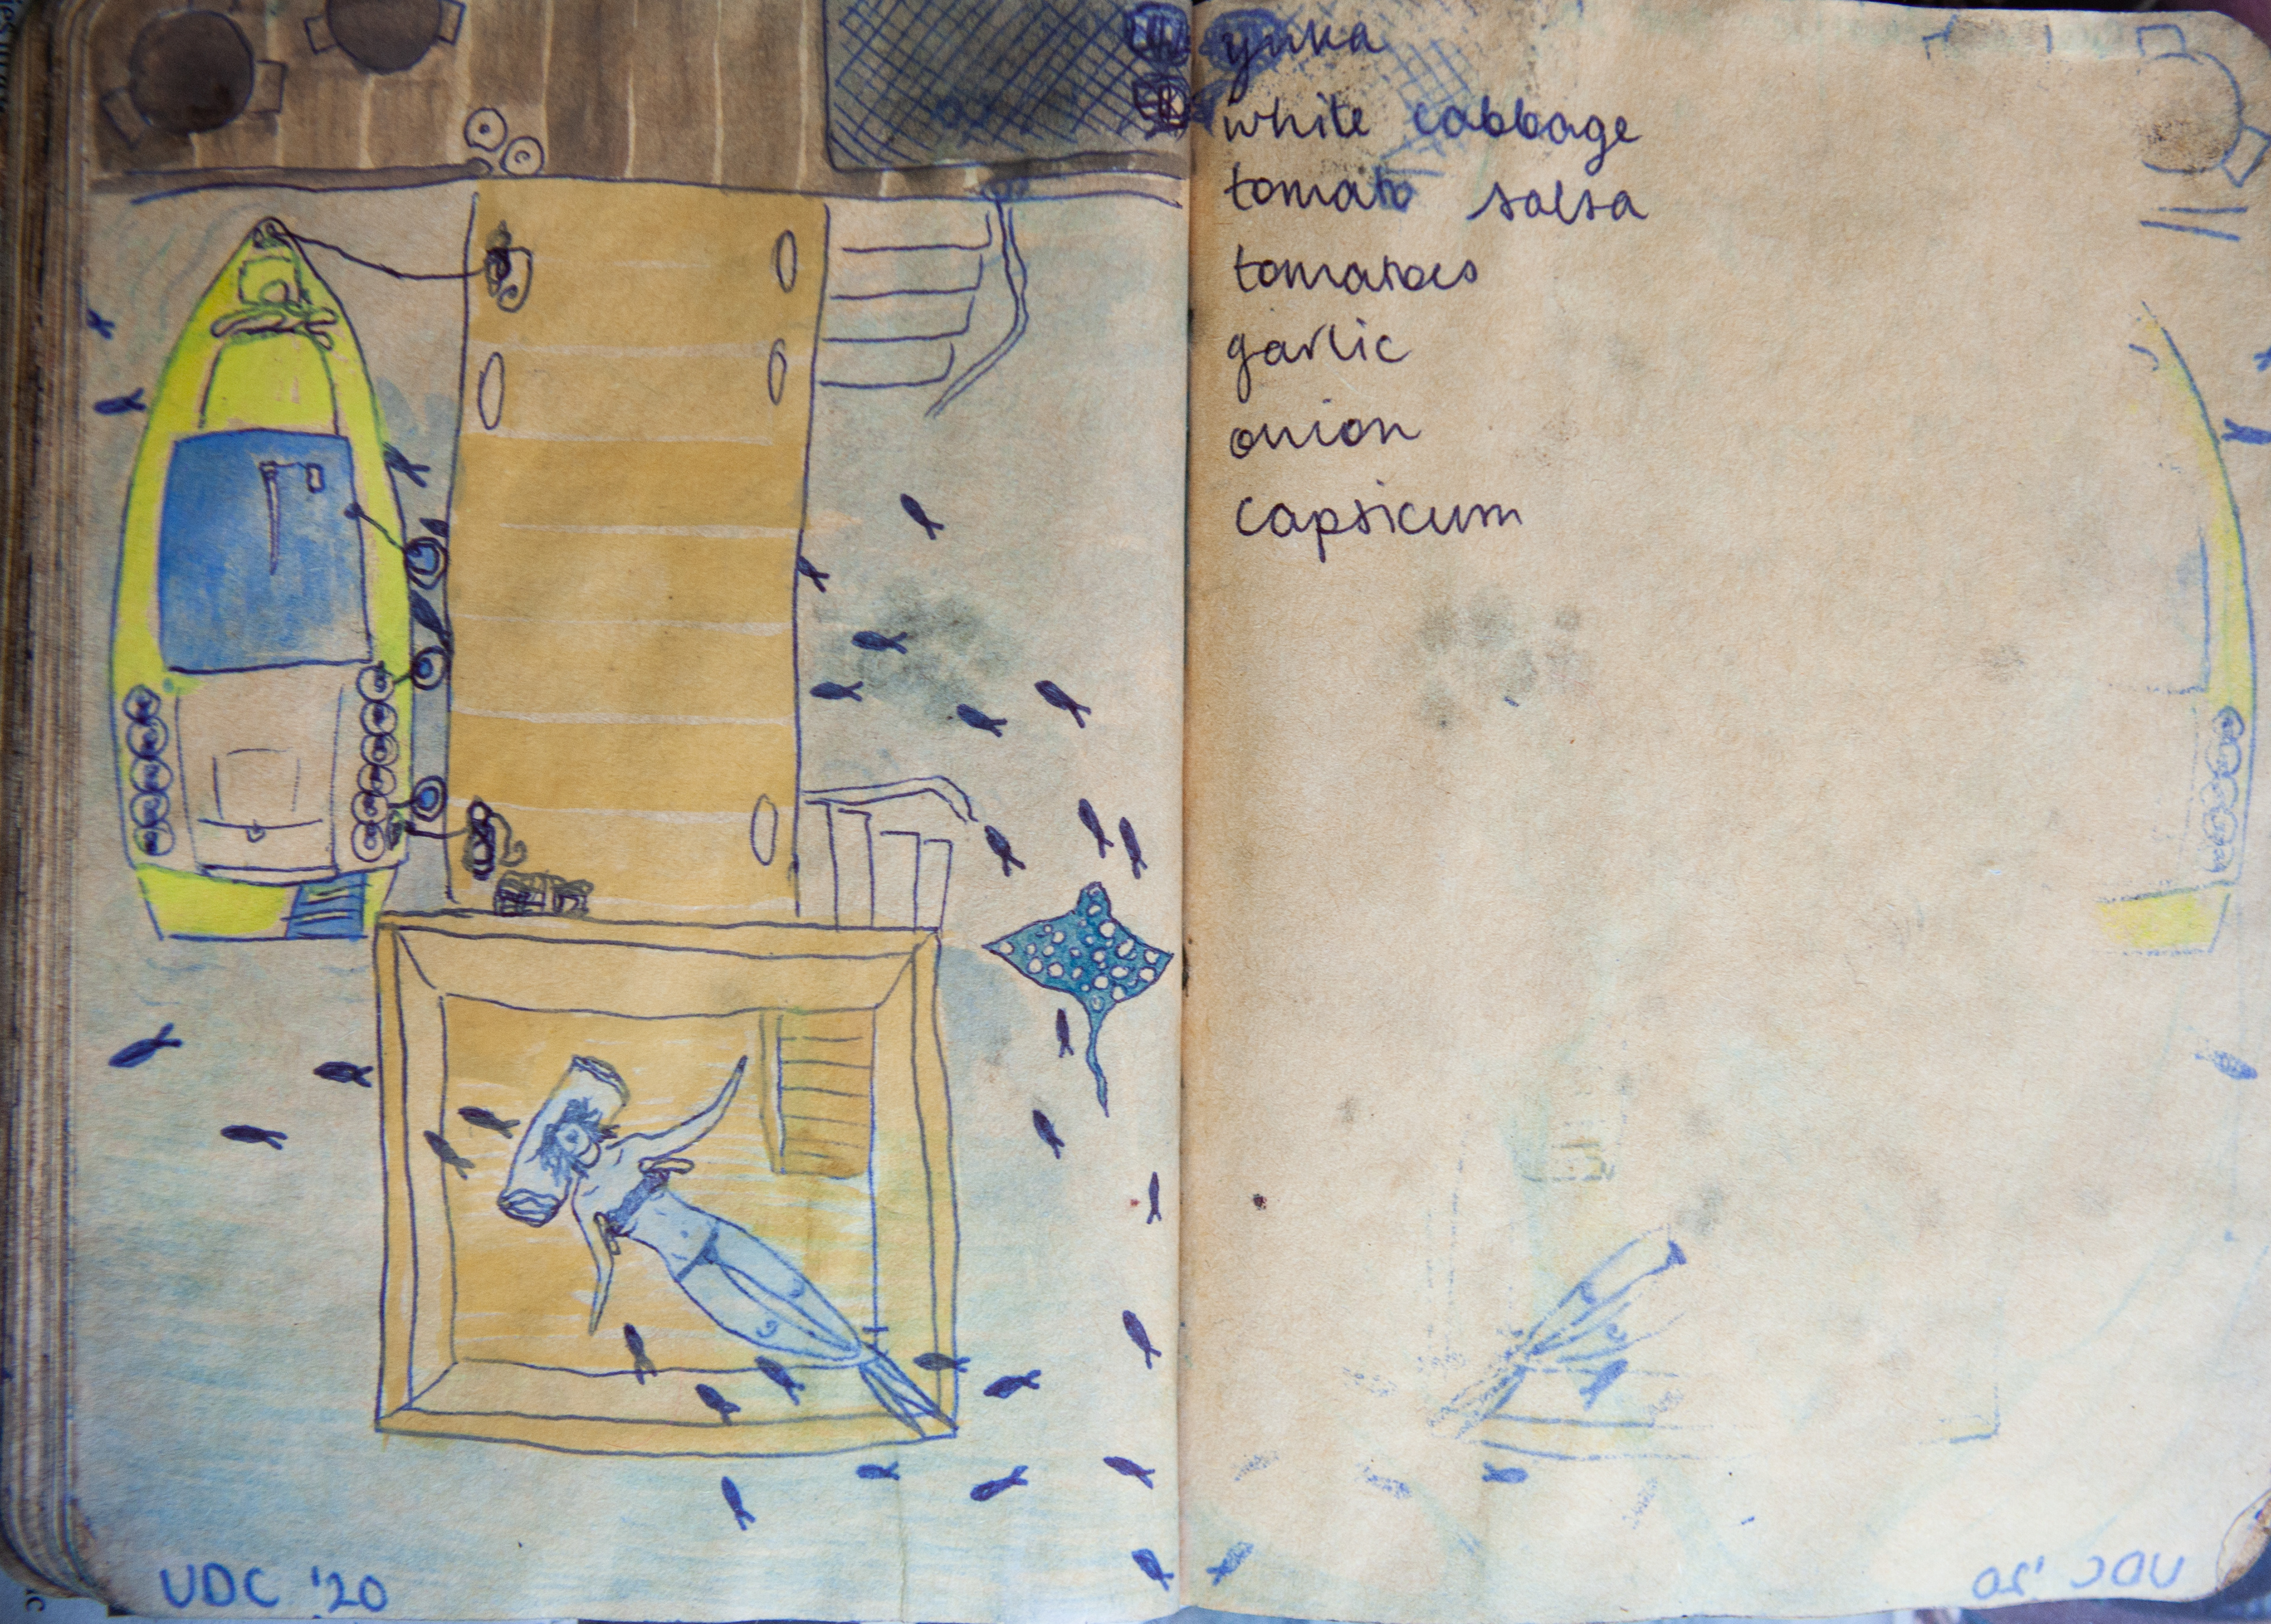 yuka
white cabbage
tomato salsa
tomatoes
garlic
onion
capsicum
UDC '20
UDC '20